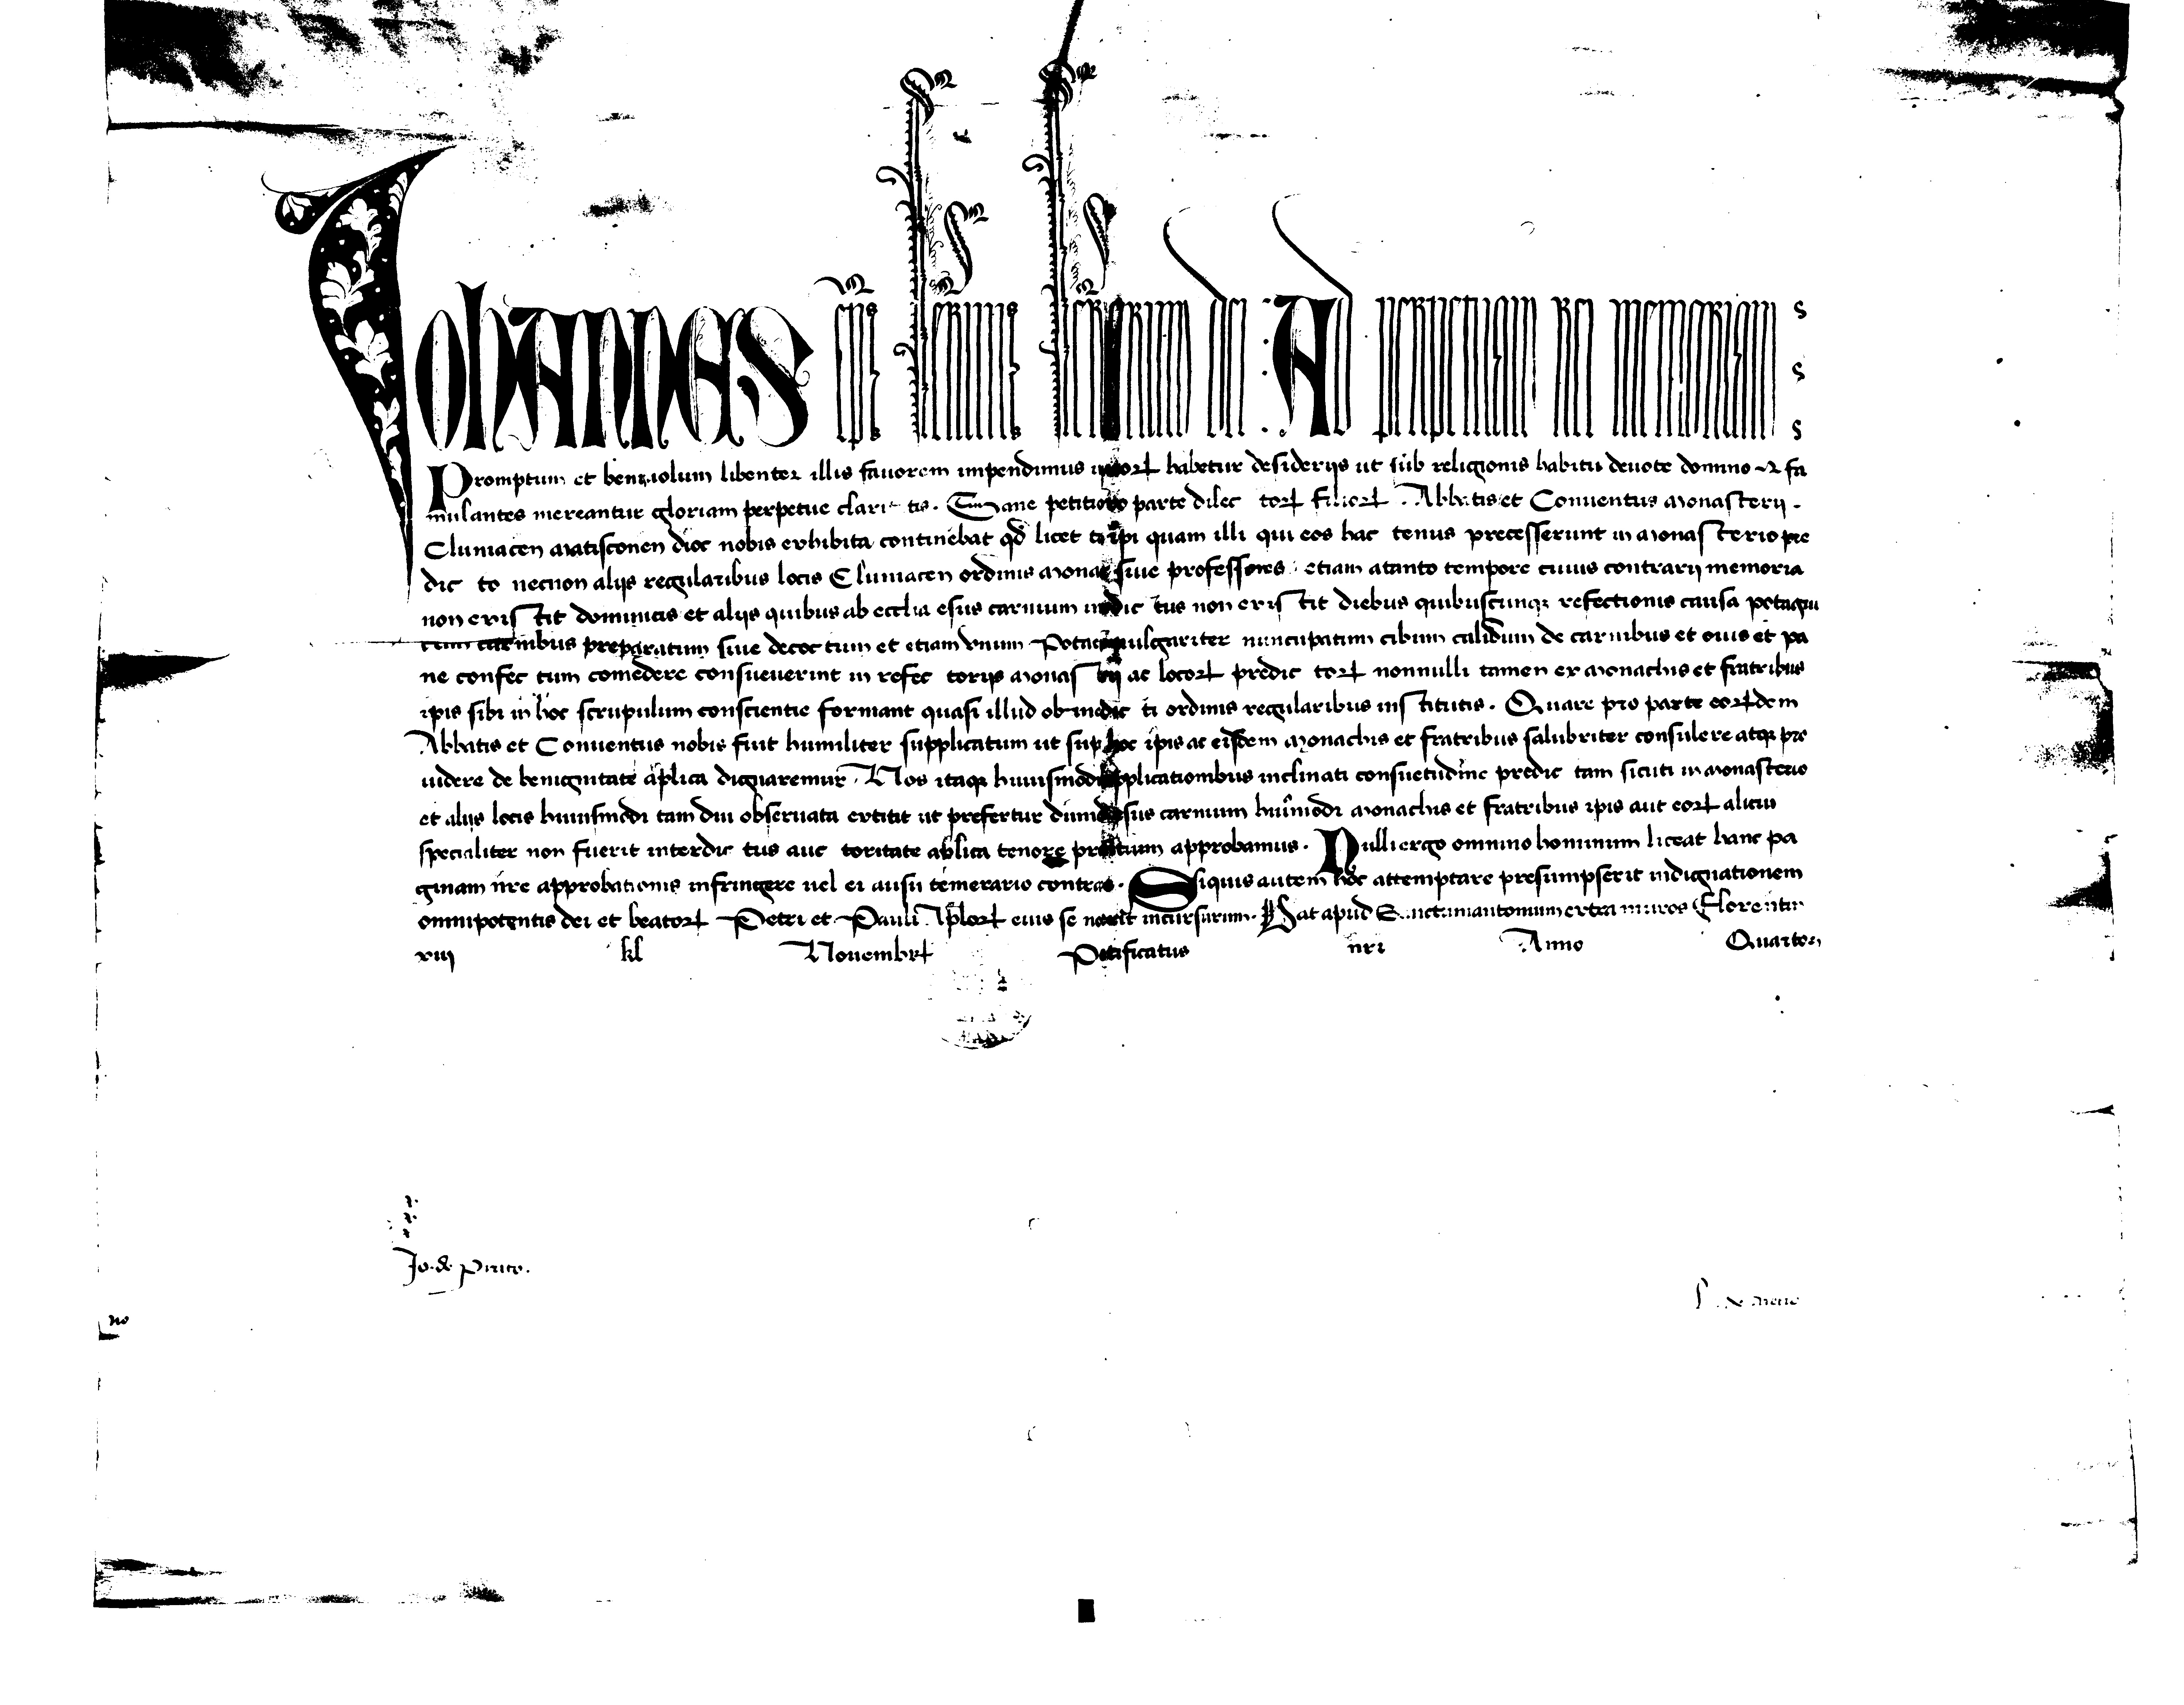 Johannes eps seruus seruorum dei : Ad perpetuam rei memoriam
Promptum et beniuolum libenter illis fauorem impendimus quorum habetur desiderijs ut sub religionis habitu deuote domino fa
mulantes mereantur gloriam perpetue claritatis. Sane petitio pro parte dilectorum filiorum . Abbatis et Conuentus Monasterij .
Cluniacen Matisconen dioc nobis exhibita continebat qd licet tam ipi quam illi qui eos hactenus precesserunt in Monasterio pre
dicto necnon alijs regularibus locis Cluniacen ordinis Monachi siue professores etiam a tanto tempore cuius contrarij memoria
non existit dominicis et alijs quibus ab ecclia esus carnium indictus non existit diebus quibuscunqz refectionis causa potagiu
cum carnibus preparatum siue decoctum et etiam vnum Potagiu vulgariter nuncupatum cibum calidum de carnibus et ouis et pa
ne confectum comedere consueuerint in refectorijs Monasterij ac locorum predictorum nonnulli tamen ex Monachis et fratribus
ipis sibi in hoc scrupulum conscientie formant quasi illud obmedicti ordinis regularibus institutis . Quare pro parte eorundem
Abbatis et Conuentus nobis fuit humiliter supplicatum ut sup hoc ipis ac eisdem Monachis et fratribus salubriter consulere atqz pro
uidere de benignitate aplica dignaremur . Nos itaqz huiusmodi supplicationibus inclinati consuetudine predictam sicuti in Monasterio
et alijs locis huiusmodi tam diu obseruata extitit ut prefertur dummodo esus carnium huiusmodi Monachis et fratribus ipis aut eorum alicui
specialiter non fuerit interdictus auctoritate aplica tenore presentium approbamus . Nulli ergo omnino hominum liceat hanc pa
ginam nre approbationis infringere uel ei ausu temerario contraire . Siquis autem hoc attemptare presumpserit indignationem
omnipotentis dei et beatorum Petri et Pauli Aplorum eius se nouerit incursurum . Dat apud Sanctum antonium extra muros Florentin
xiij kl Nouembr Potificatus nri Anno Quarto
Jo. de Pinito .